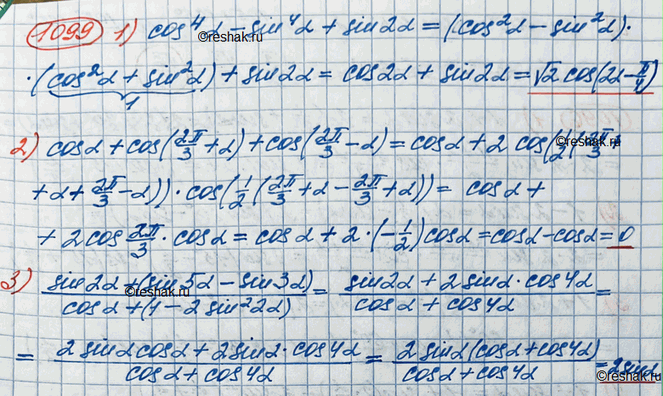 1099 1) cos⁴α – sin⁴α + sin2α = (cos²α – sin²α)·
·(cos²α + sin²α) + sin2α = cos2α + sin2α = √2 cos(2α – π/4)
1
2) cosα + cos(2π/3 + α) + cos(2π/3 – α) = cosα + 2 cos(1/2(2π/3 +
+ α + 2π/3 – α))·cos(1/2(2π/3 + α – 2π/3 + α)) = cosα +
+ 2cos 2π/3 · cosα = cosα + 2·(–1/2)cosα = cosα – cosα = 0
3) (sin2α + (sin5α – sin3α))/(cosα + (1 – 2sin²2α)) = (sin2α + 2sinα·cos4α)/(cosα + cos4α) =
= (2sinαcosα + 2sinα·cos4α)/(cosα + cos4α) = (2sinα(cosα + cos4α))/(cosα + cos4α) = 2sinα
©reshak.ru
©reshak.ru
©reshak.ru
©reshak.ru
©reshak.ru